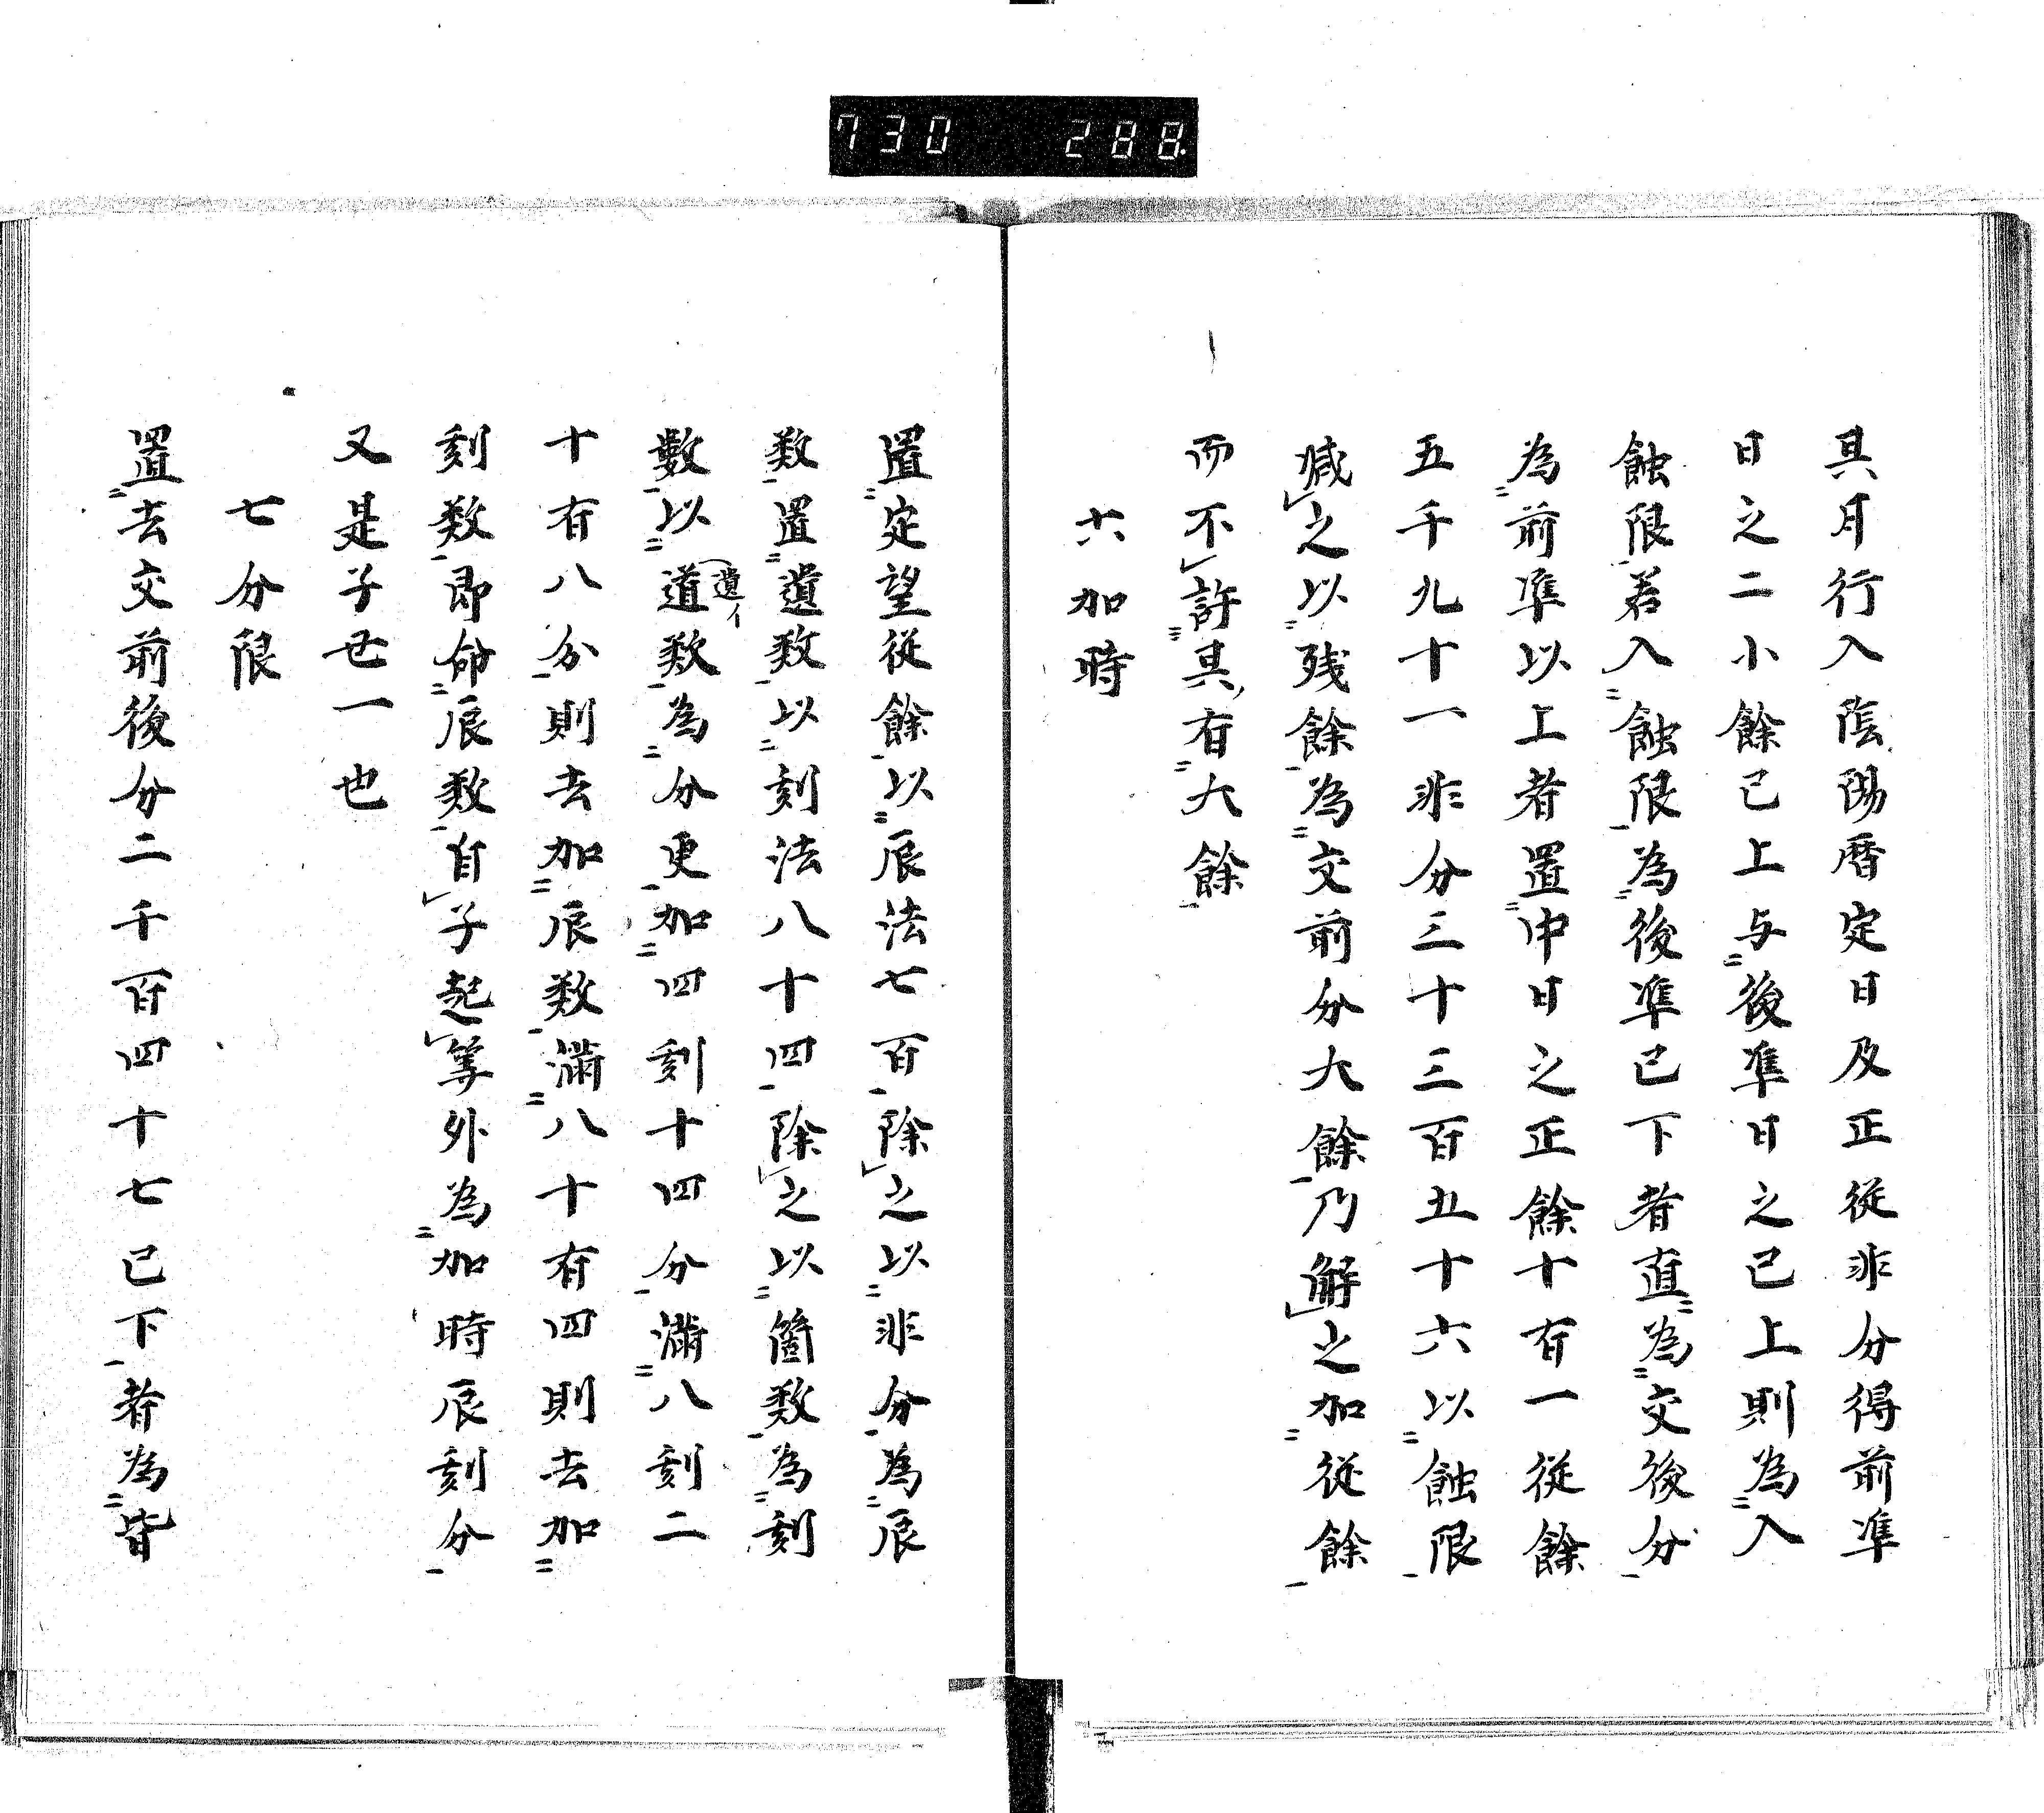 730 288
其月行入陰陽暦定日及正従非分得前準
日之二小餘已上与後準日之已上則為入
蝕限若入蝕限為後準已下者直為交後分
為前準以上者置中日之正餘十有一従餘
五千九十一非分三十三百五十六以蝕限
減之以残餘為交前分大餘乃解之加従餘
而不許其有大餘
六加時
置定望従餘以辰法七百除之以非分為辰
数置遺数以刻法八十四除之以箇数為刻
數以道数為分更加四刻十四分満八刻二
遺イ
十有八分則去加辰数満八十有四則去加
刻数即命辰数自子起筭外為加時辰刻分
又是子世一也
七分限
置去交前後分二千百四十七已下者為皆